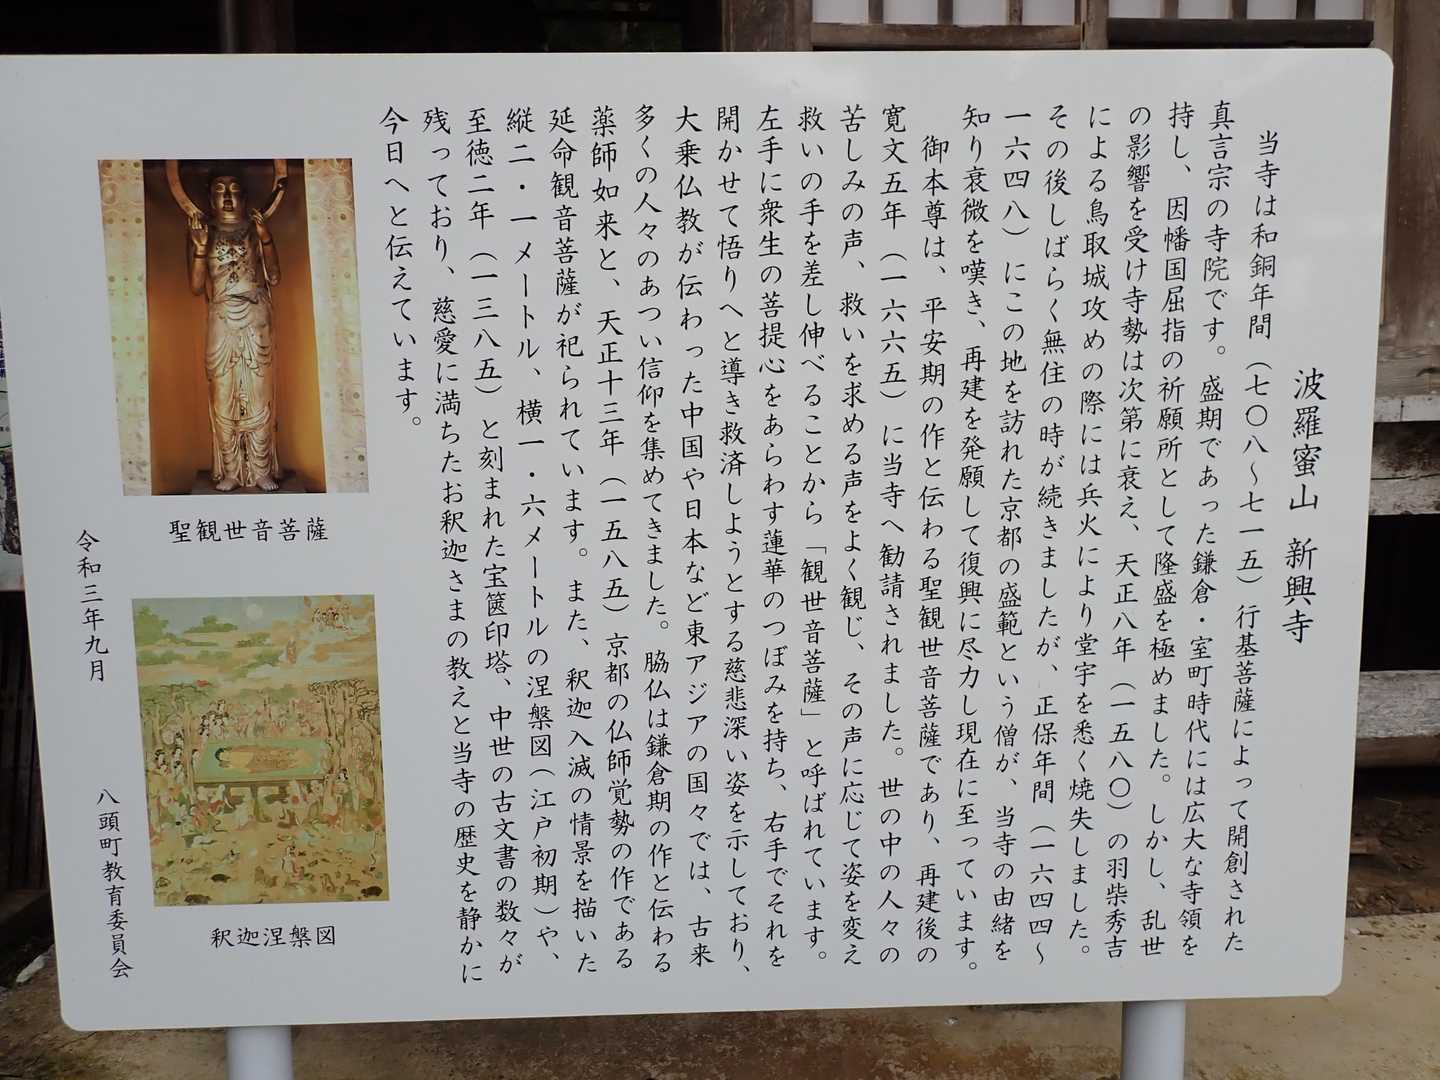 波羅蜜山 新興寺
当寺は和銅年間（七〇八～七一五）行基菩薩によって開創された
真言宗の寺院です。盛期であった鎌倉・室町時代には広大な寺領を
持し、因幡国屈指の祈願所として隆盛を極めました。しかし、乱世
の影響を受け寺勢は次第に衰え、天正八年（一五八〇）の羽柴秀吉
による鳥取城攻めの際には兵火により堂宇を悉く焼失しました。
その後しばらく無住の時が続きましたが、正保年間（一六四四～
一六四八）にこの地を訪れた京都の盛範という僧が、当寺の由緒を
知り衰微を嘆き、再建を発願して復興に尽力し現在に至っています。
御本尊は、平安期の作と伝わる聖観世音菩薩であり、再建後の
寛文五年（一六六五）に当寺へ勧請されました。世の中の人々の
苦しみの声、救いを求める声をよく観じ、その声に応じて姿を変え
救いの手を差し伸べることから「観世音菩薩」と呼ばれています。
左手に衆生の菩提心をあらわす蓮華のつぼみを持ち、右手でそれを
開かせて悟りへと導き救済しようとする慈悲深い姿を示しており、
大乗仏教が伝わった中国や日本など東アジアの国々では、古来
多くの人々のあつい信仰を集めてきました。脇仏は鎌倉期の作と伝わる
薬師如来と、天正十三年（一五八五）京都の仏師覚勢の作である
延命観音菩薩が祀られています。また、釈迦入滅の情景を描いた
縦二・一メートル、横一・六メートルの涅槃図（江戸初期）や、
至徳二年（一三八五）と刻まれた宝篋印塔、中世の古文書の数々が
残っており、慈愛に満ちたお釈迦さまの教えと当寺の歴史を静かに
今日へと伝えています。
聖観世音菩薩
釈迦涅槃図
令和三年九月
八頭町教育委員会